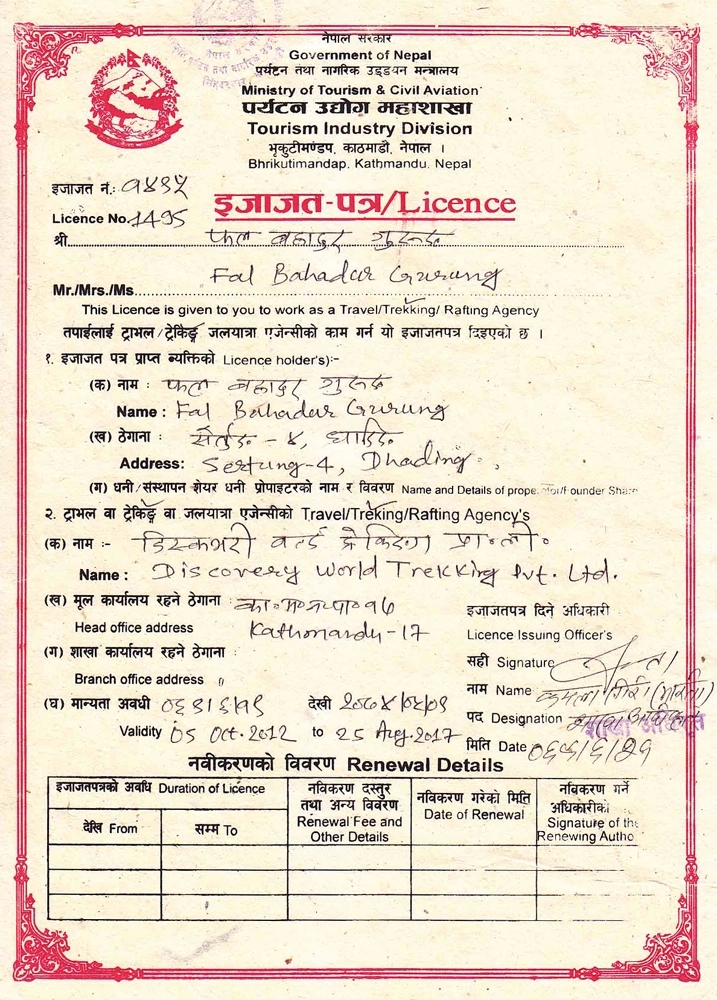 नेपाल सरकार
Government of Nepal
पर्यटन तथा नागरिक उड्डयन मन्त्रालय
Ministry of Tourism & Civil Aviation
पर्यटन उद्योग महाशाखा
Tourism Industry Division
भृकुटीमण्डप, काठमाडौं, नेपाल ।
Bhrikutimandap, Kathmandu, Nepal
इजाजत नं.: १४९५
Licence No. 1495
इजाजत-पत्र/Licence
श्री फल बहादुर गुरुङ
Fal Bahadur Gurung
Mr./Mrs./Ms.
This Licence is given to you to work as a Travel/Trekking/ Rafting Agency
तपाईलाई ट्राभल/ट्रेकिङ्ग जलयात्रा एजेन्सीको काम गर्न यो इजाजतपत्र दिइएको छ ।
१. इजाजत पत्र प्राप्त ब्यक्तिको Licence holder's):-
(क) नाम : फल बहादुर गुरुङ
Name : Fal Bahadur Gurung
(ख) ठेगाना : सेर्तुङ - ४, धादिङ
Address: Sertung-4, Dhading
(ग) धनी/संस्थापन शेयर धनी प्रोपाइटरको नाम र विवरण Name and Details of prope /Founder Share
२. ट्राभल वा ट्रेकिङ्ग वा जलयात्रा एजेन्सीको Travel/Treking/Rafting Agency's
(क) नाम :- डिस्कभरी वर्ल्ड ट्रेकिङ्ग प्रा.ली.
Name : Discovery World Trekking Pvt. Ltd.
(ख) मूल कार्यालय रहने ठेगाना : का.म.न.पा. १७
Head office address Kathmandu-17
(ग) शाखा कार्यालय रहने ठेगाना :
Branch office address
(घ) मान्यता अवधी ०६९।६।१९ देखी
Validity 05 Oct. 2012 to 25 Aug. 2017
इजाजतपत्र दिने अधिकारी
Licence Issuing Officer's
सही Signature
नाम Name कमला गिरी
पद Designation
मिति Date ०६९/६/१९
नवीकरणको विवरण Renewal Details
इजाजतपत्रको अवधि Duration of Licence
देखि From
सम्म To
नविकरण दस्तुर तथा अन्य विवरण Renewal Fee and Other Details
नविकरण गरेको मिति Date of Renewal
नविकरण गर्ने अधिकारीको Signature of the Renewing Autho